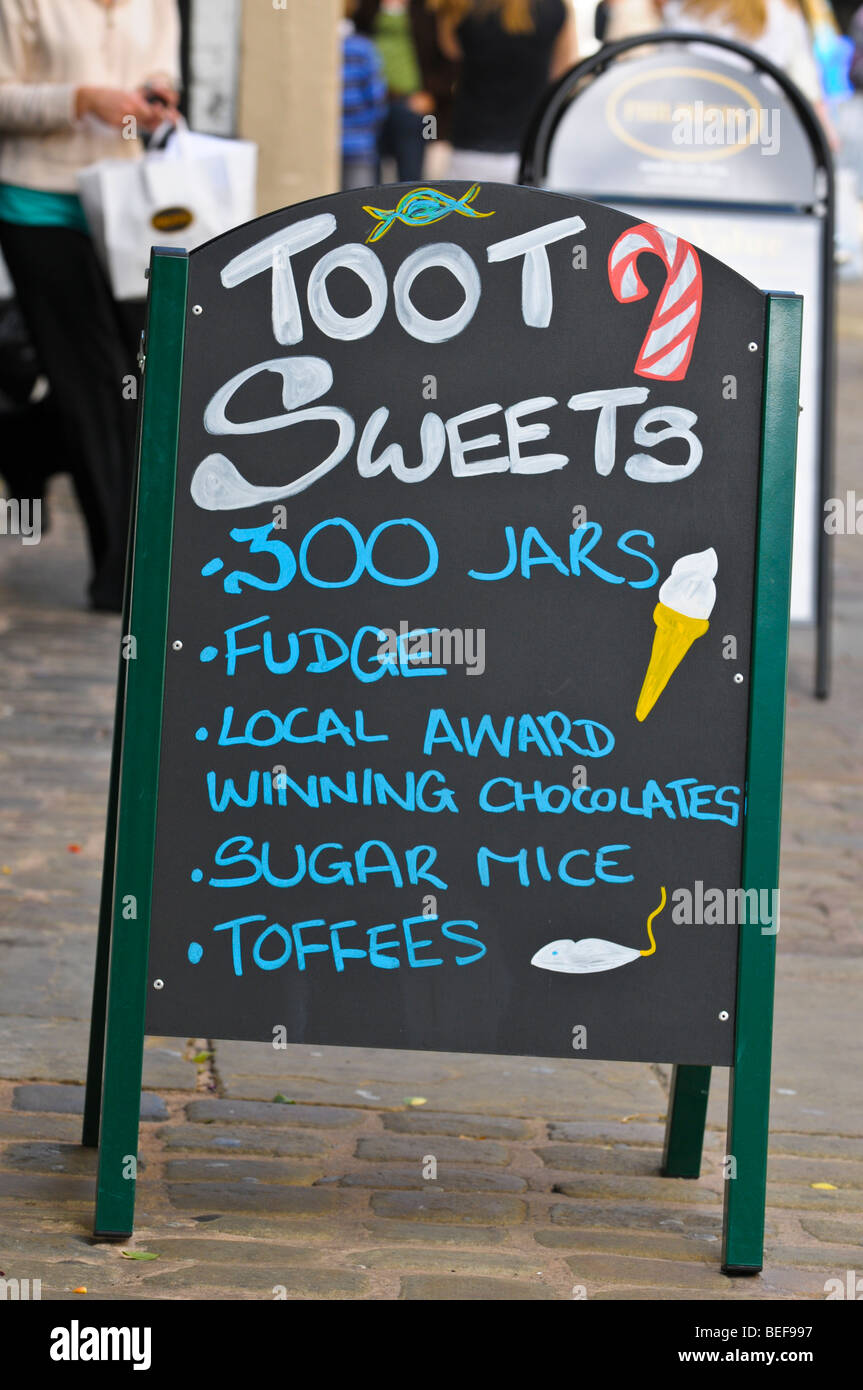 TOOT
SWEETS
• 300 JARS
• FUDGE
• LOCAL AWARD
WINNING CHOCOLATES
• SUGAR MICE
• TOFFEES
alamy
Image ID: BEF997
www.alamy.com